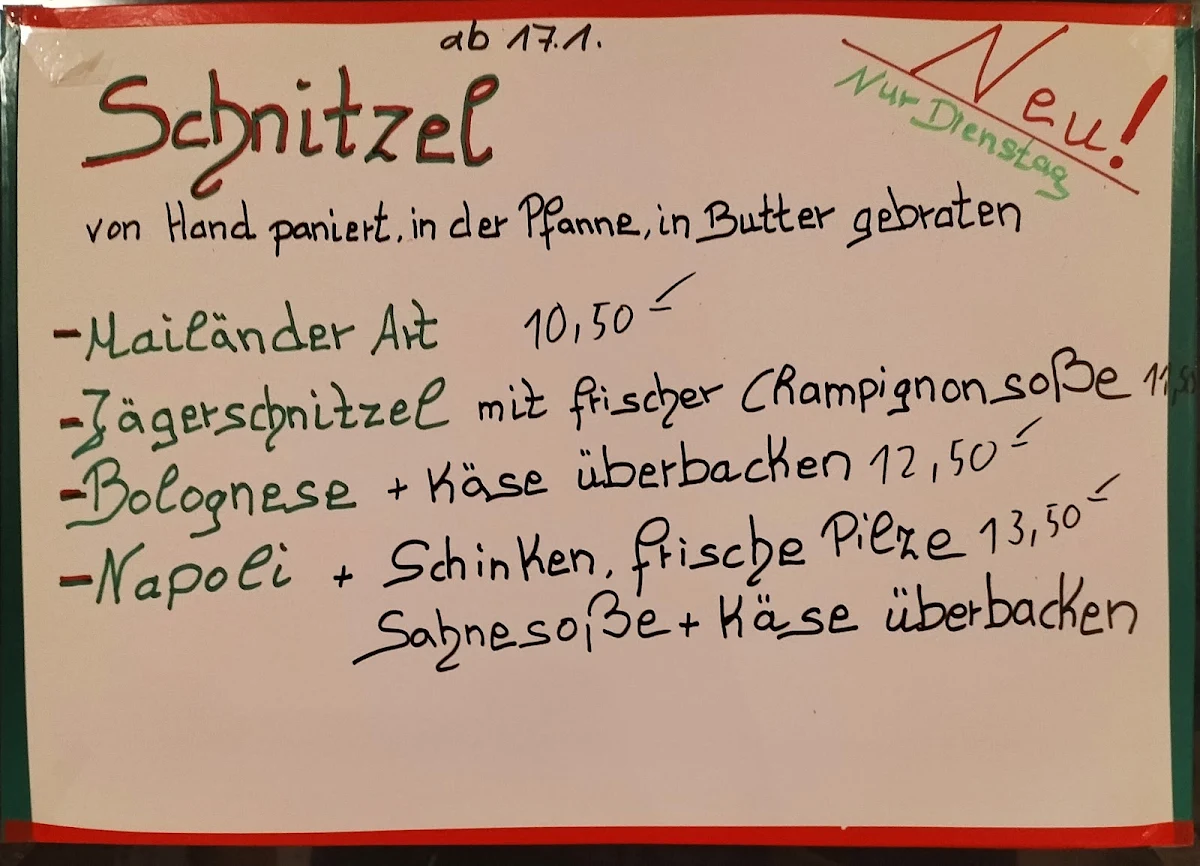 ab 17.1.
Neu!
Nur Dienstag
Schnitzel
von Hand paniert, in der Pfanne, in Butter gebraten
- Mailänder Art 10,50
- Jägerschnitzel mit frischer Champignonsoße 11,50
- Bolognese + Käse überbacken 12,50
- Napoli + Schinken, frische Pilze 13,50
Sahnesoße + Käse überbacken